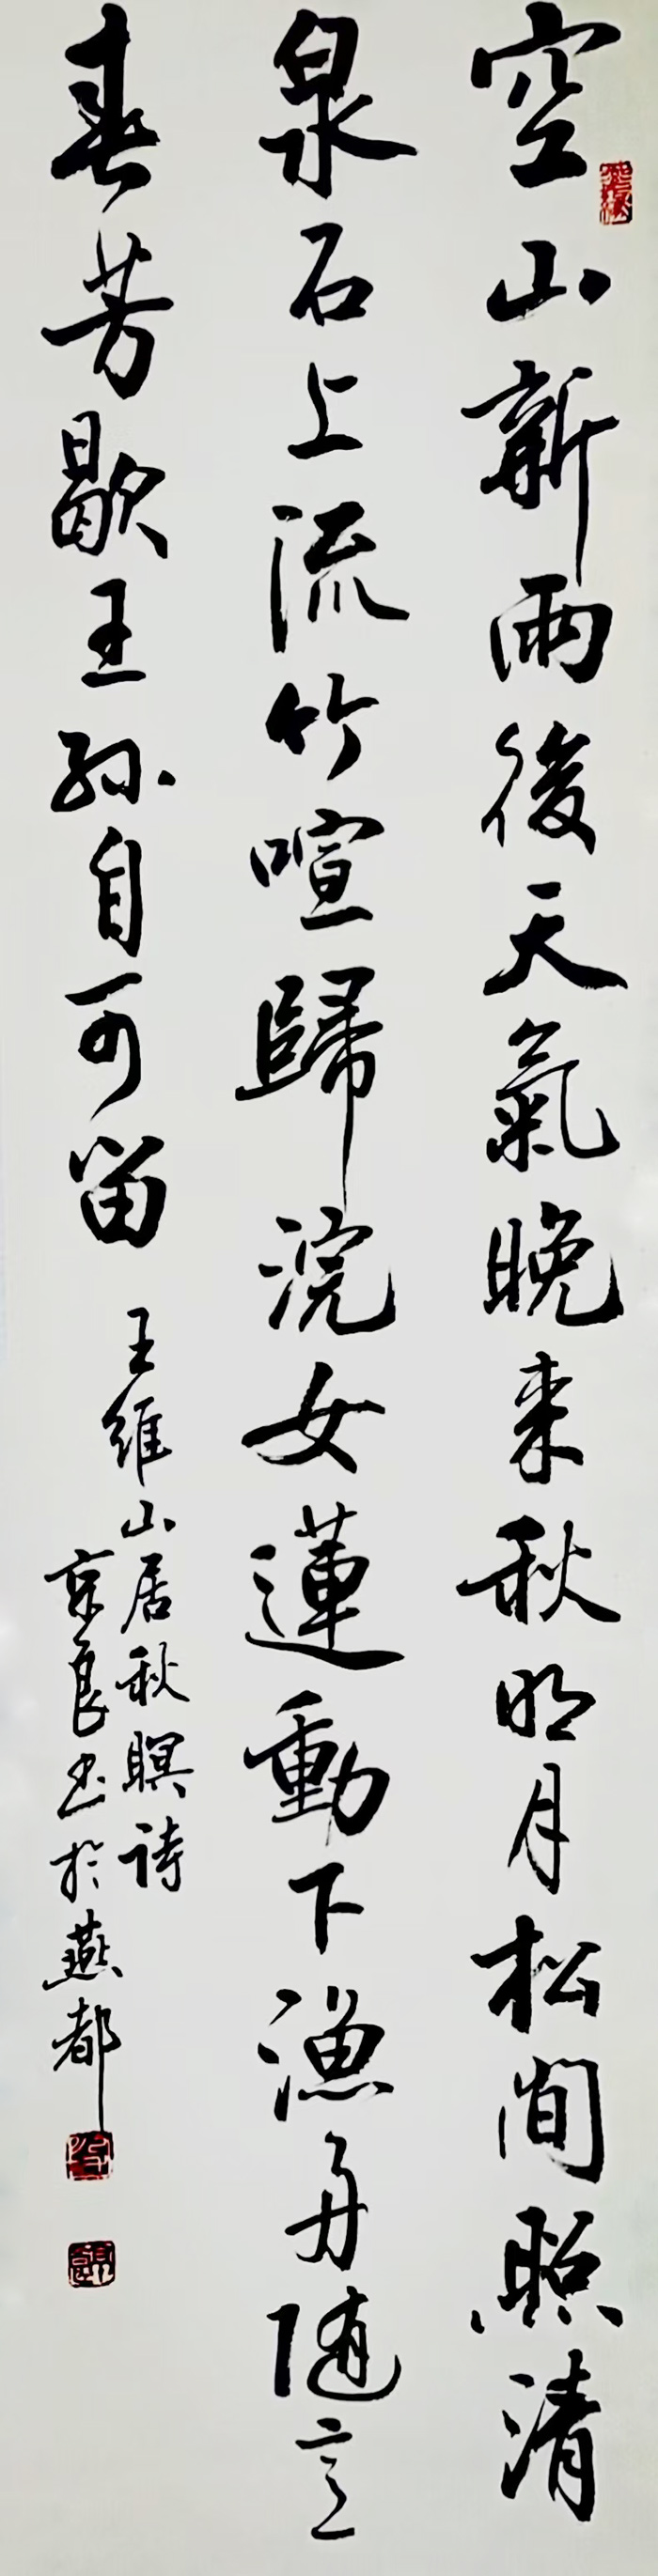 空山新雨後天氣晚来秋明月松間照清
泉石上流竹喧歸浣女蓮動下漁舟随意
春芳歇王孫自可留
王維山居秋暝诗
京良书於燕都